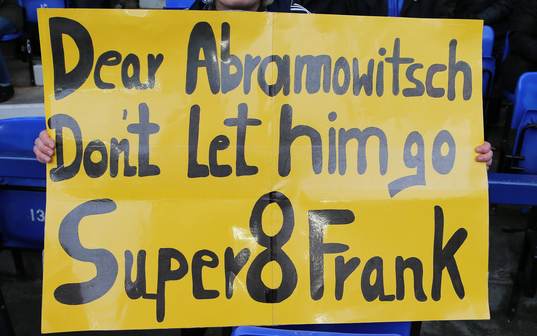 Dear Abramowitsch
Don't let him go
Super 8 Frank
13